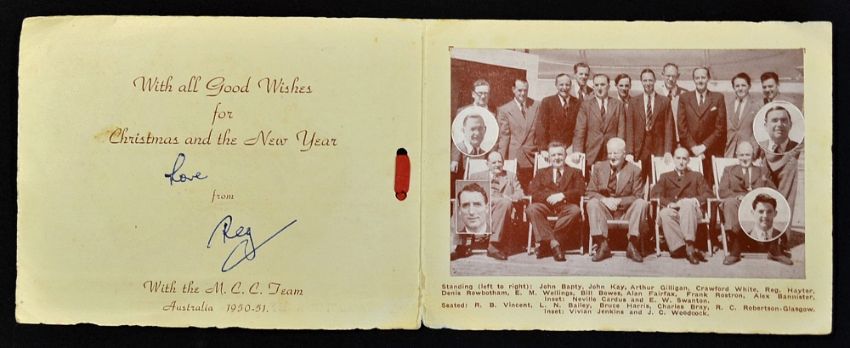 With all Good Wishes
for
Christmas and the New Year
Love
from
Reg
With the M. C. C. Team
Australia 1950-51.
Standing (left to right): John Bapty, John Kay, Arthur Gilligan, Crawford White, Reg. Hayter,
Denis Rowbotham, E. M. Wellings, Bill Bowes, Alan Fairfax, Frank Rostron, Alex Bannister.
Inset: Neville Cardus and E. W. Swanton.
Seated: R. B. Vincent, L. N. Bailey, Bruce Harris, Charles Bray, R. C. Robertson-Glasgow.
Inset: Vivian Jenkins and J. C. Woodcock.